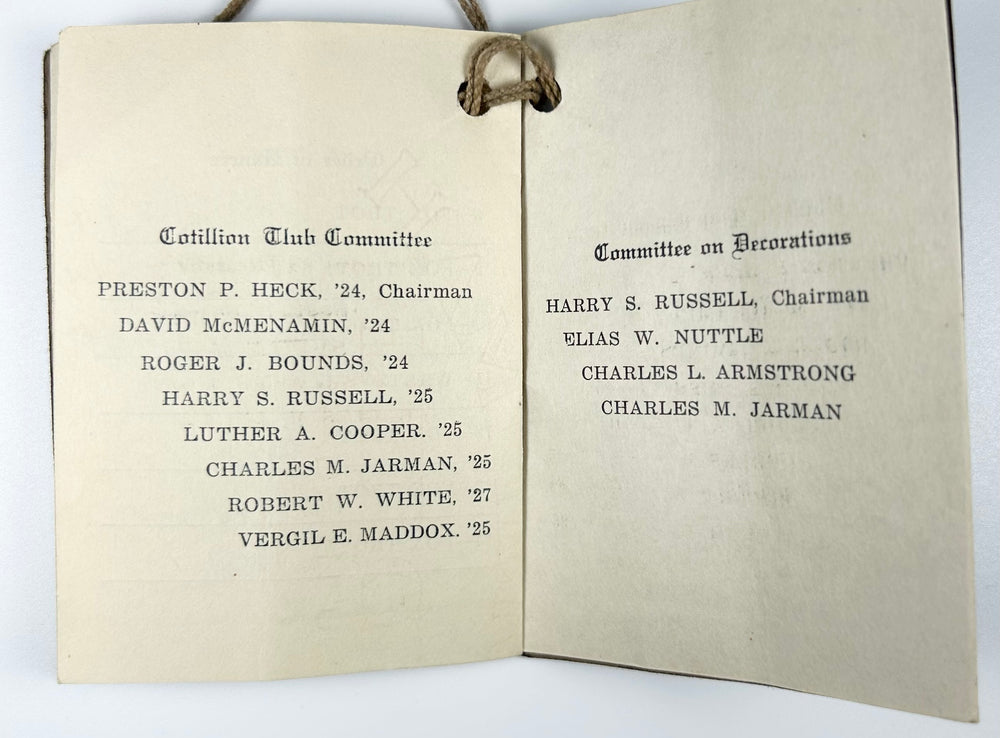 Cotillion Club Committee
PRESTON P. HECK, '24, Chairman
DAVID McMENAMIN, '24
ROGER J. BOUNDS, '24
HARRY S. RUSSELL, '25
LUTHER A. COOPER. '25
CHARLES M. JARMAN, '25
ROBERT W. WHITE, '27
VERGIL E. MADDOX. '25
Committee on Decorations
HARRY S. RUSSELL, Chairman
ELIAS W. NUTTLE
CHARLES L. ARMSTRONG
CHARLES M. JARMAN